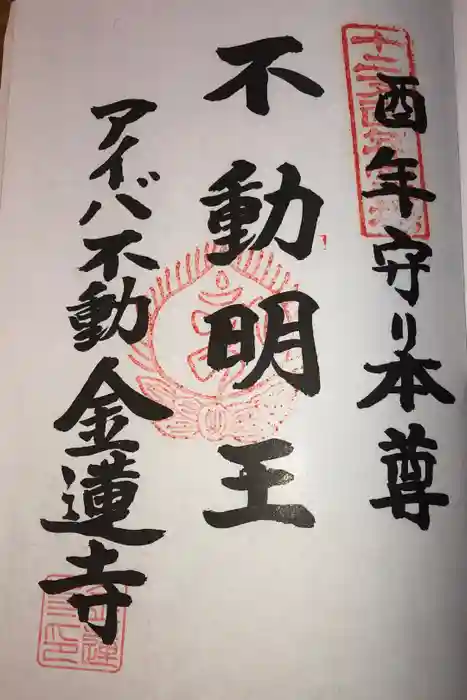 酉年守り本尊
不動明王
アイバ不動金蓮寺